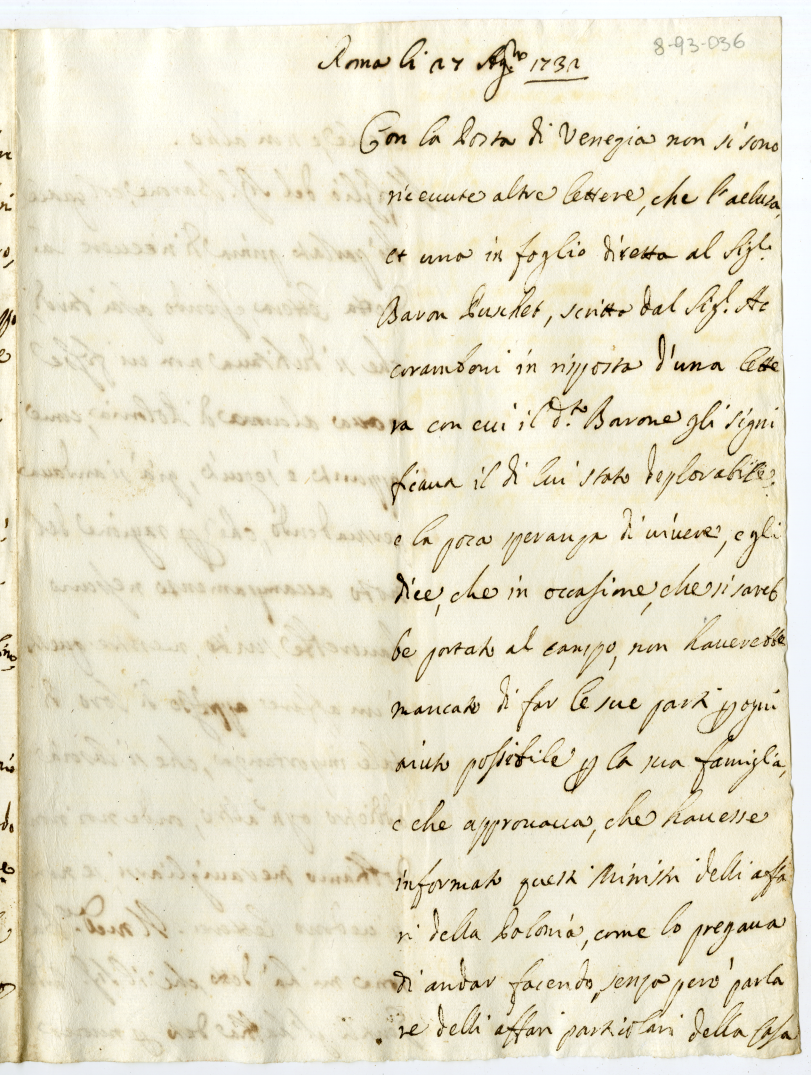 8-93-036
Roma li 27 Ag.to 1732
Con la Posta di Venezia non si sono
riceuute altre lettere, che l'aclusa,
et una in foglio diretta al Sig.r
Baron Puschet, scritta dal Sig.r Ac
coramboni in risposta d'una lette
ra con cui il d.to Barone gli signi
ficaua il di lui stato deplorabile
e la poca speranza di uiuere, egli
dice, che in occasione, che si sareb
be portato al campo, non hauerebbe
mancato di far le sue parti per ogni
aiuto possibile per la sua famiglia,
e che approuaua, che hauesse
informato questi Ministri delli affa
ri della Polonia, come lo pregaua
di andar facendo, senza però parla
re delli affari particolari della Casa